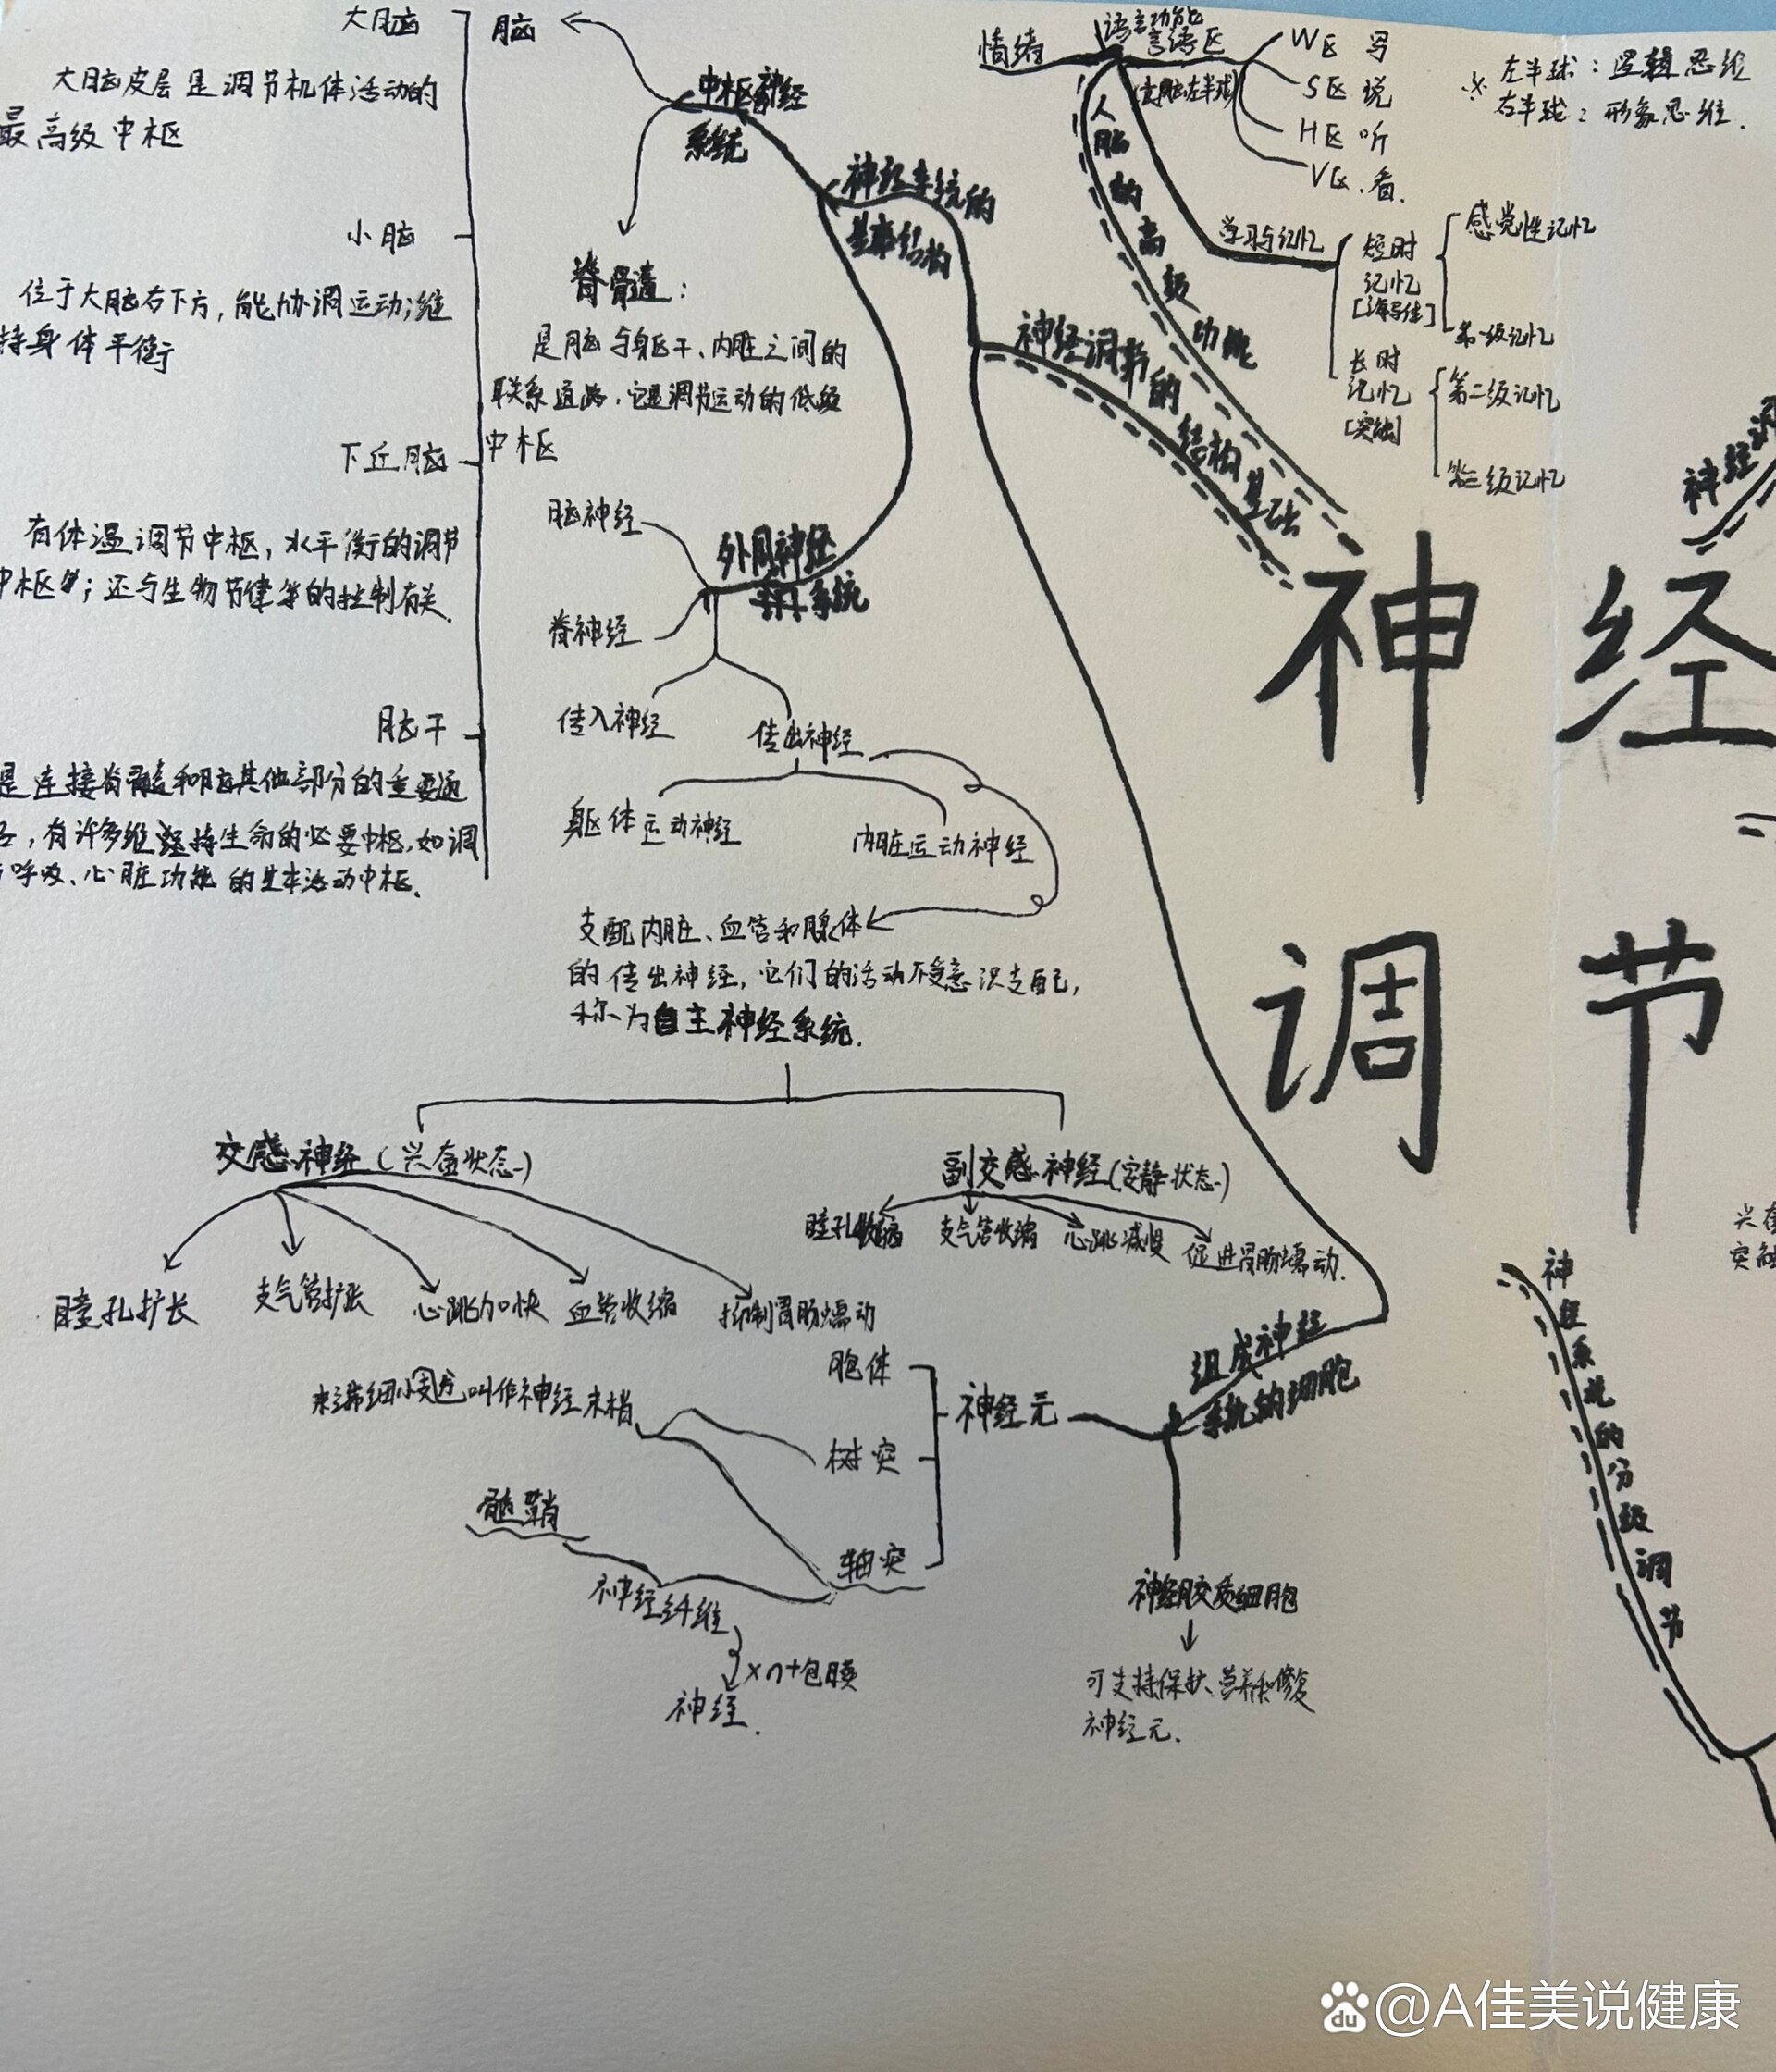 大脑
大脑皮层是调节机体活动的
最高级中枢
小脑
位于大脑右下方,能协调运动;维
持身体平衡
下丘脑
有体温调节中枢,水平衡的调节
中枢;还与生物节律等的控制有关.
脑干
是连接脊髓和脑其他部分的重要通
,有许多维持生命的必要中枢,如调
呼吸、心脏功能的基本活动中枢.
脑
中枢神经
系统
脊髓:
是脑与躯干、内脏之间的
联系通路,它是调节运动的低级
中枢
神经系统的
基本结构
外周神经
系统
脑神经
脊神经
传入神经
传出神经
躯体运动神经
内脏运动神经
支配内脏、血管和腺体
的传出神经,它们的活动不受意识支配,
称为自主神经系统.
交感神经(兴奋状态)
瞳孔扩长
支气管扩张
心跳加快
血管收缩
抑制胃肠蠕动
副交感神经(安静状态)
瞳孔收缩
支气管收缩
心跳减慢
促进胃肠蠕动.
组成神经
系统的细胞
神经元
胞体
树突
轴突
末端细小叫作神经末梢
髓鞘
神经纤维
×n+包膜
神经.
神经胶质细胞
可支持保护、营养和修复
神经元.
神经调节的结构基础
人脑的高级功能
情绪
语言功能
言语区
(大脑左半球)
W区 写
S区 说
H区 听
V区.看.
学习与记忆
短时
记忆
感觉性记忆
第一级记忆
长时
记忆
[突触]
第二级记忆
第三级记忆
左半球:逻辑思维
右半球:形象思维.
神经
调节
神经调
兴奋
突触
神经系统的分级调节
@A佳美说健康